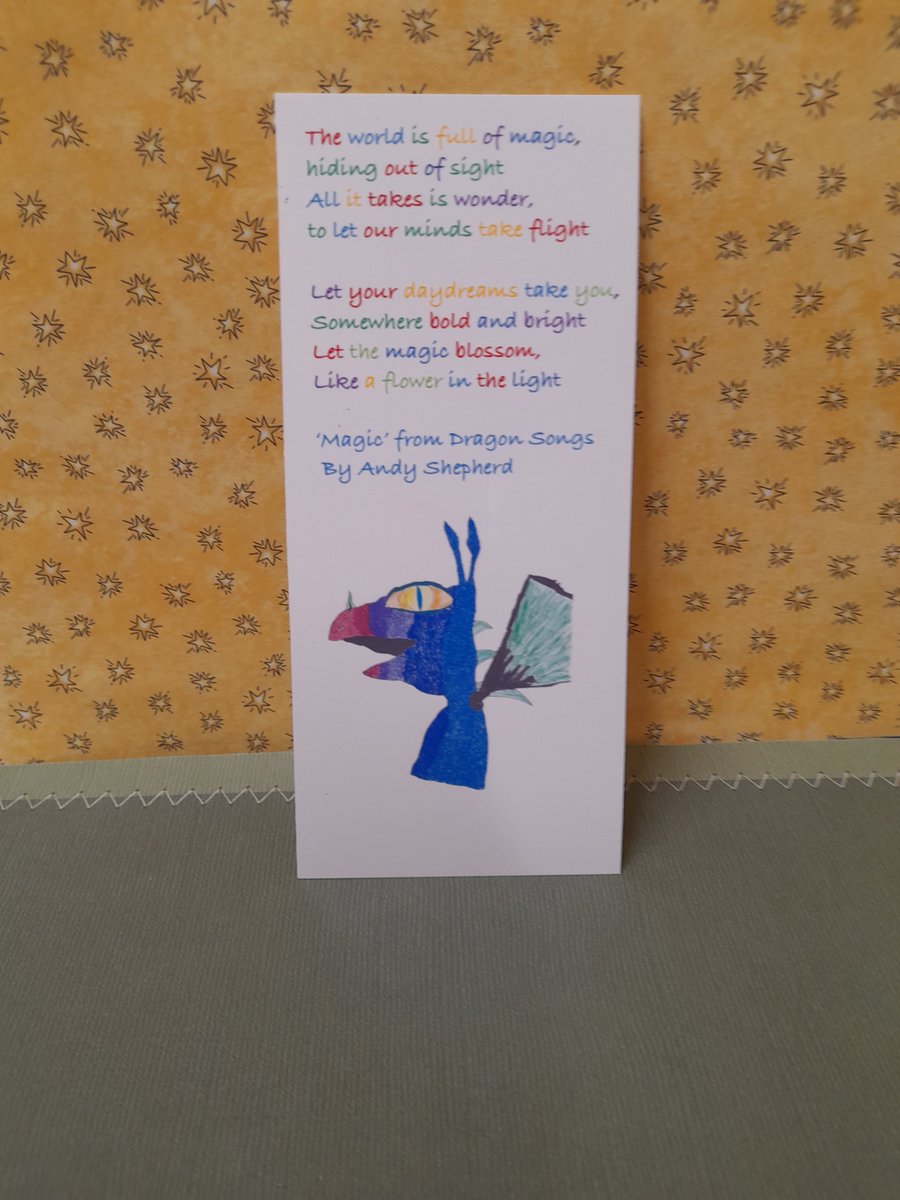 The world is full of magic,
hiding out of sight
All it takes is wonder,
to let our minds take flight
Let your daydreams take you,
Somewhere bold and bright
Let the magic blossom,
Like a flower in the light
‘Magic’ from Dragon Songs
By Andy Shepherd